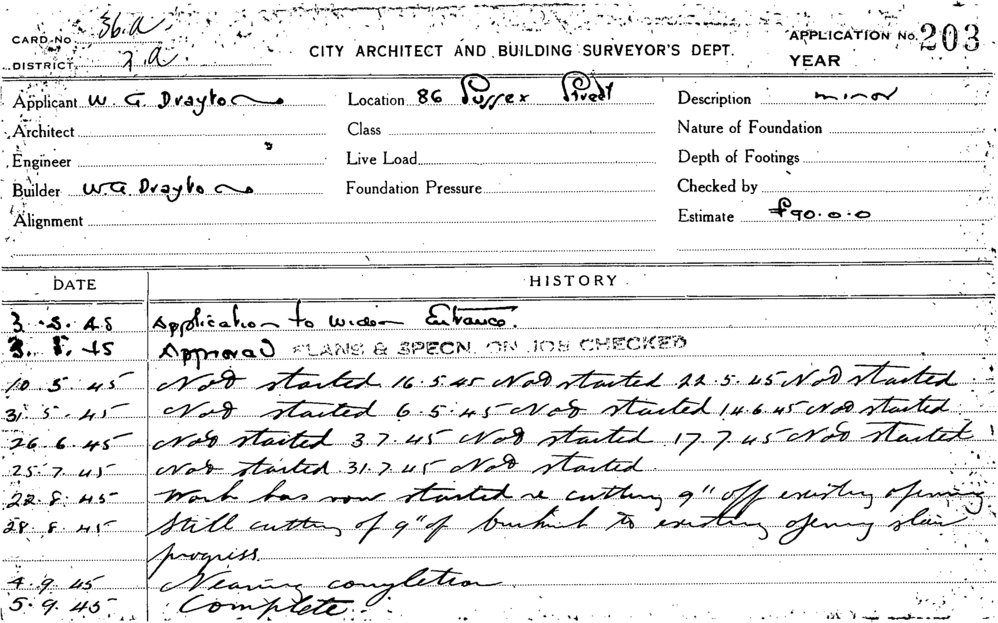 CARD No 36.a
DISTRICT 2.a.
CITY ARCHITECT AND BUILDING SURVEYOR'S DEPT.
APPLICATION No. 203
YEAR
Applicant W. G. Drayton
Location 86 Sussex Street
Description minor
Architect
Class
Nature of Foundation
Engineer
Live Load
Depth of Footings
Builder W.G. Drayton
Foundation Pressure
Checked by
Alignment
Estimate £90.0.0
DATE HISTORY
3 .5. 45 Application to widen Entrance.
3. 5. 45 Approved PLANS & SPECN. ON JOB CHECKED
10 5. 45 Not started 16.5.45 Not started 22.5.45 Not started
31 5. 45 Not started 6.5.45 Not started 14.6.45 Not started
26.6.45 Not started 3.7.45 Not started 17.7.45 Not started
25.7.45 Not started 31.7.45 Not started.
22.8.45 Work has now started re cutting 9" off existing opening
28.8.45 Still cutting of 9" of to existing opening slow
progress.
4.9.45 Nearing completion.
5.9.45 Complete.